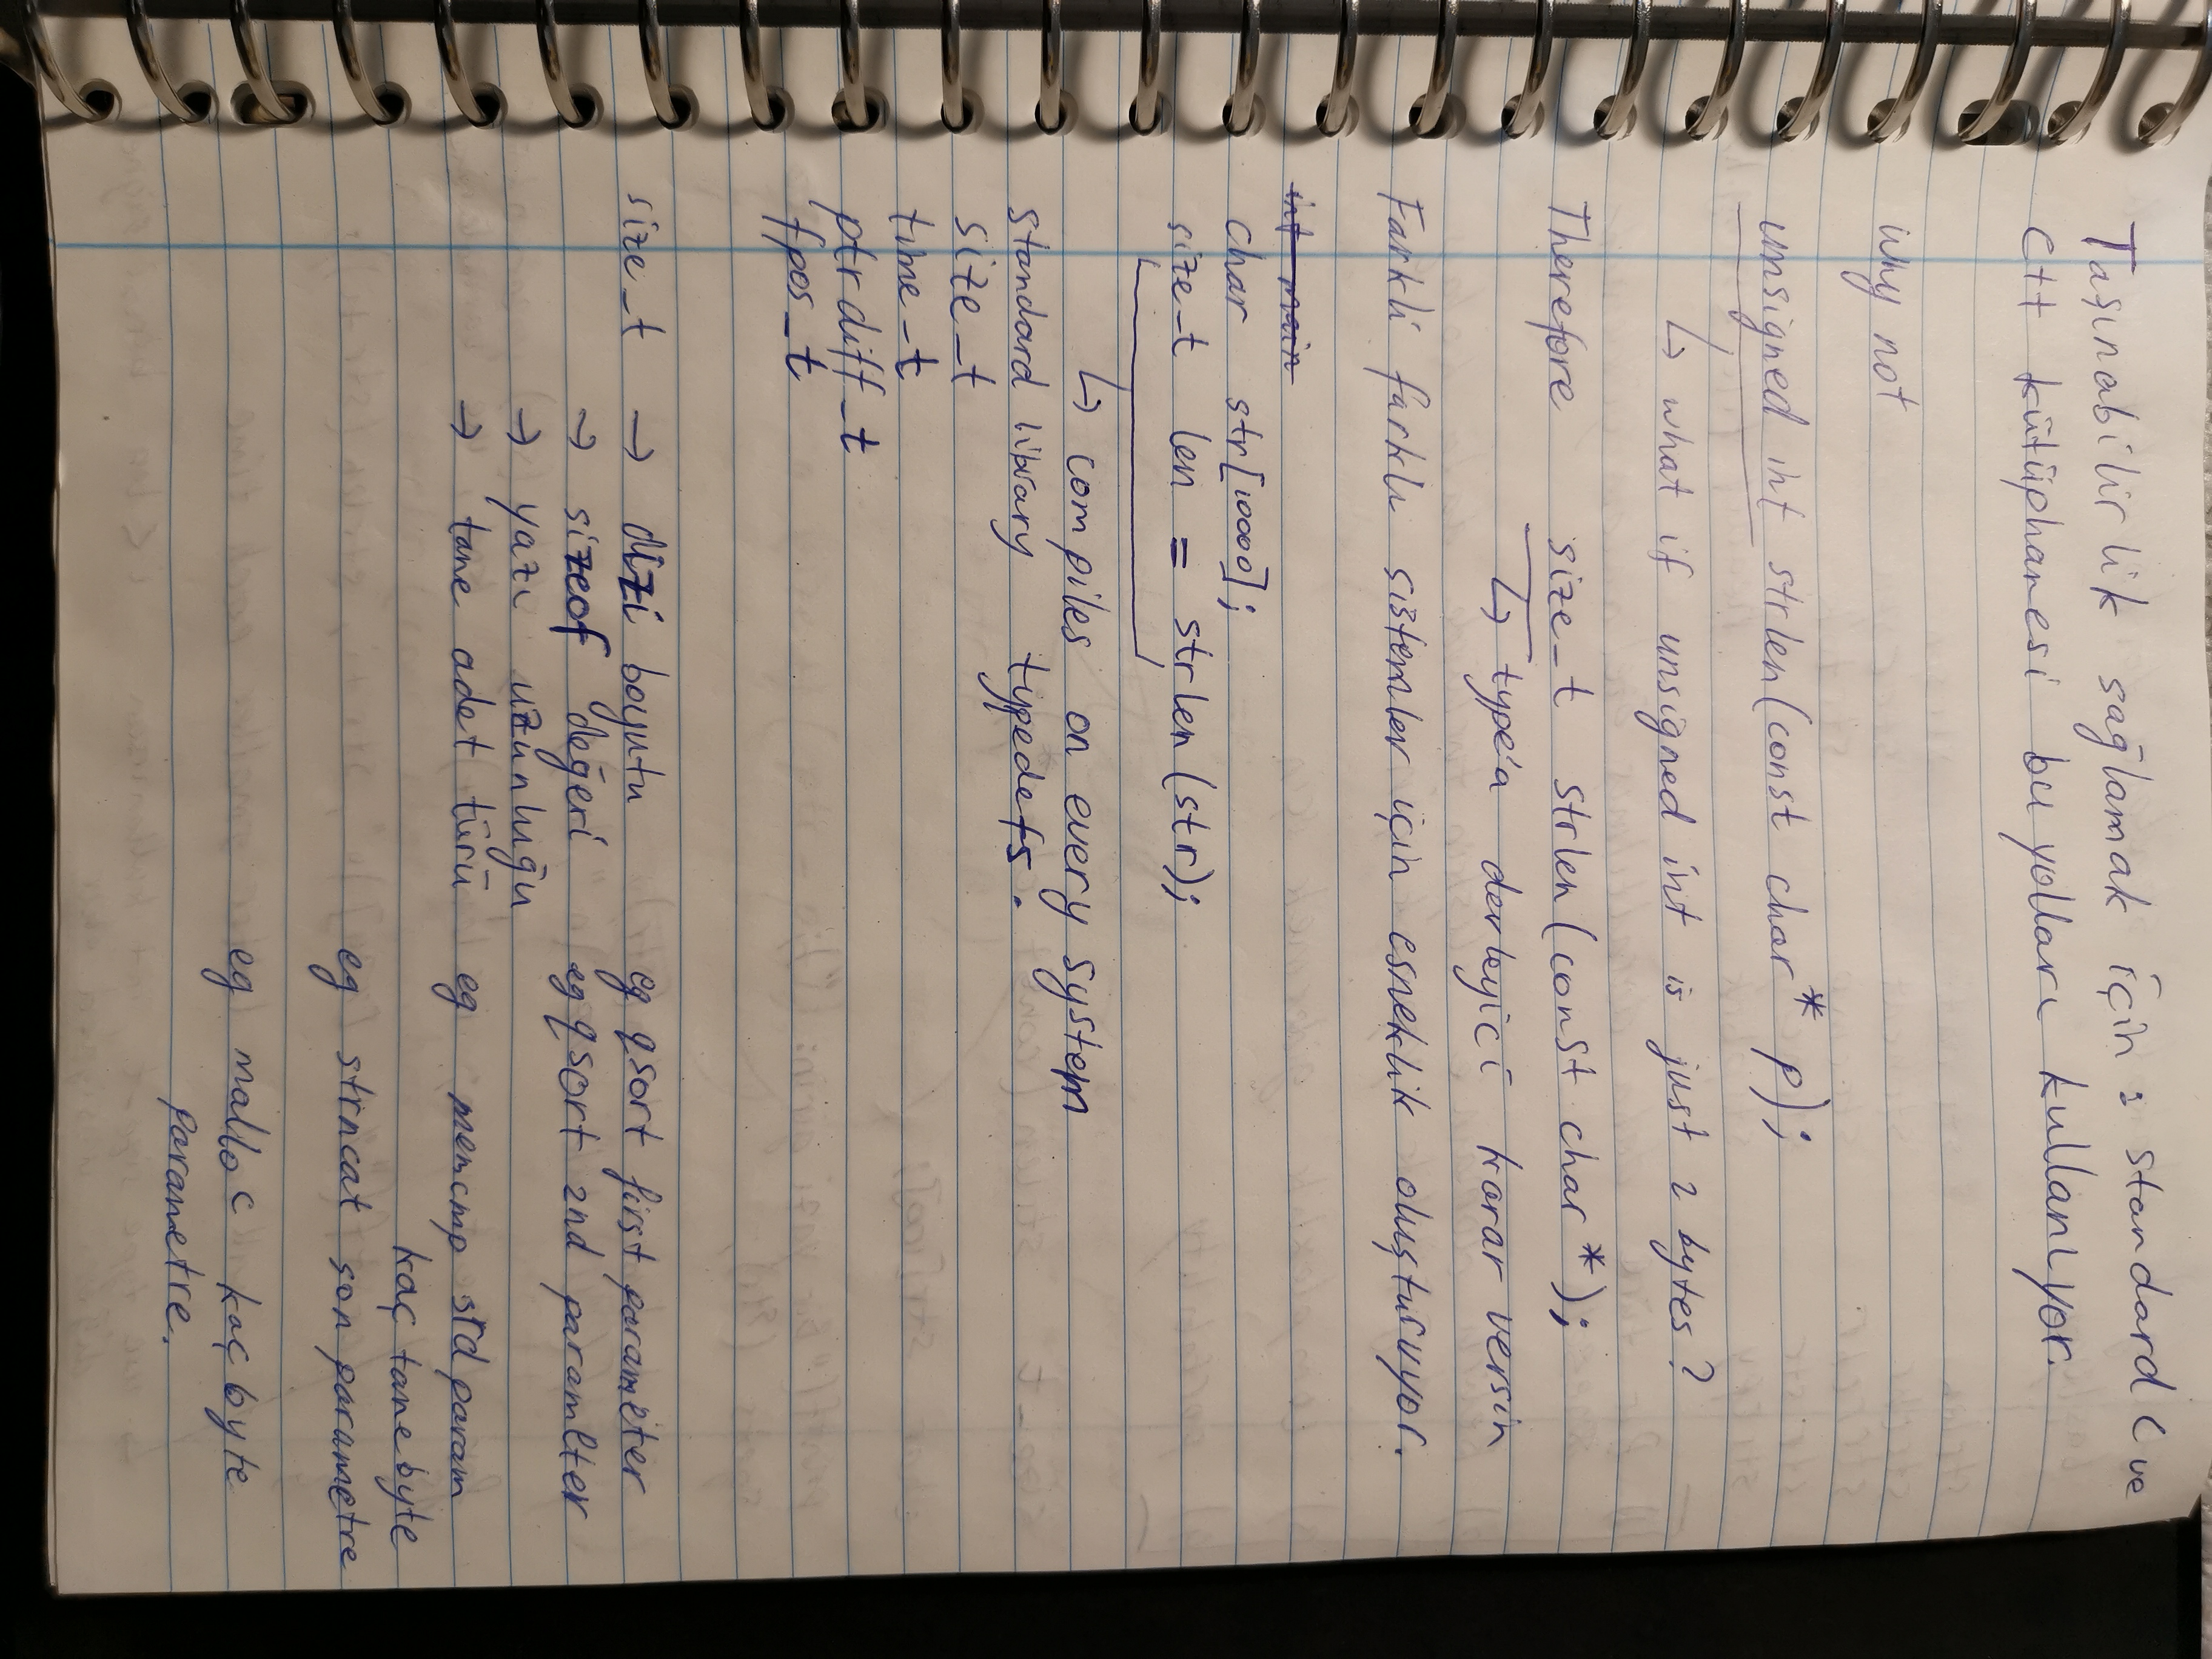 Taşınabilirlik sağlamak için : standard C ve
C++ kütüphanesi bu yolları kullanıyor.
why not
unsigned int strlen(const char* p);
↳ what if unsigned int is just 2 bytes?
Therefore size_t strlen(const char*);
↳ type'a derleyici karar versin
Farklı farklı sistemler için esneklik oluşturuyor.
int main
char str[10000];
size_t len = strlen(str);
↳ compiles on every system
standard library typedefs.
size_t
time_t
ptrdiff_t
fpos_t
size_t → dizi boyutu eg qsort first parameter
→ sizeof değeri eg qsort 2nd parameter
→ yazı uzunluğu
→ tane adet türü eg memcmp 3rd param
kaç tane byte
eg strncat son parametre
eg malloc kaç byte
parametre.